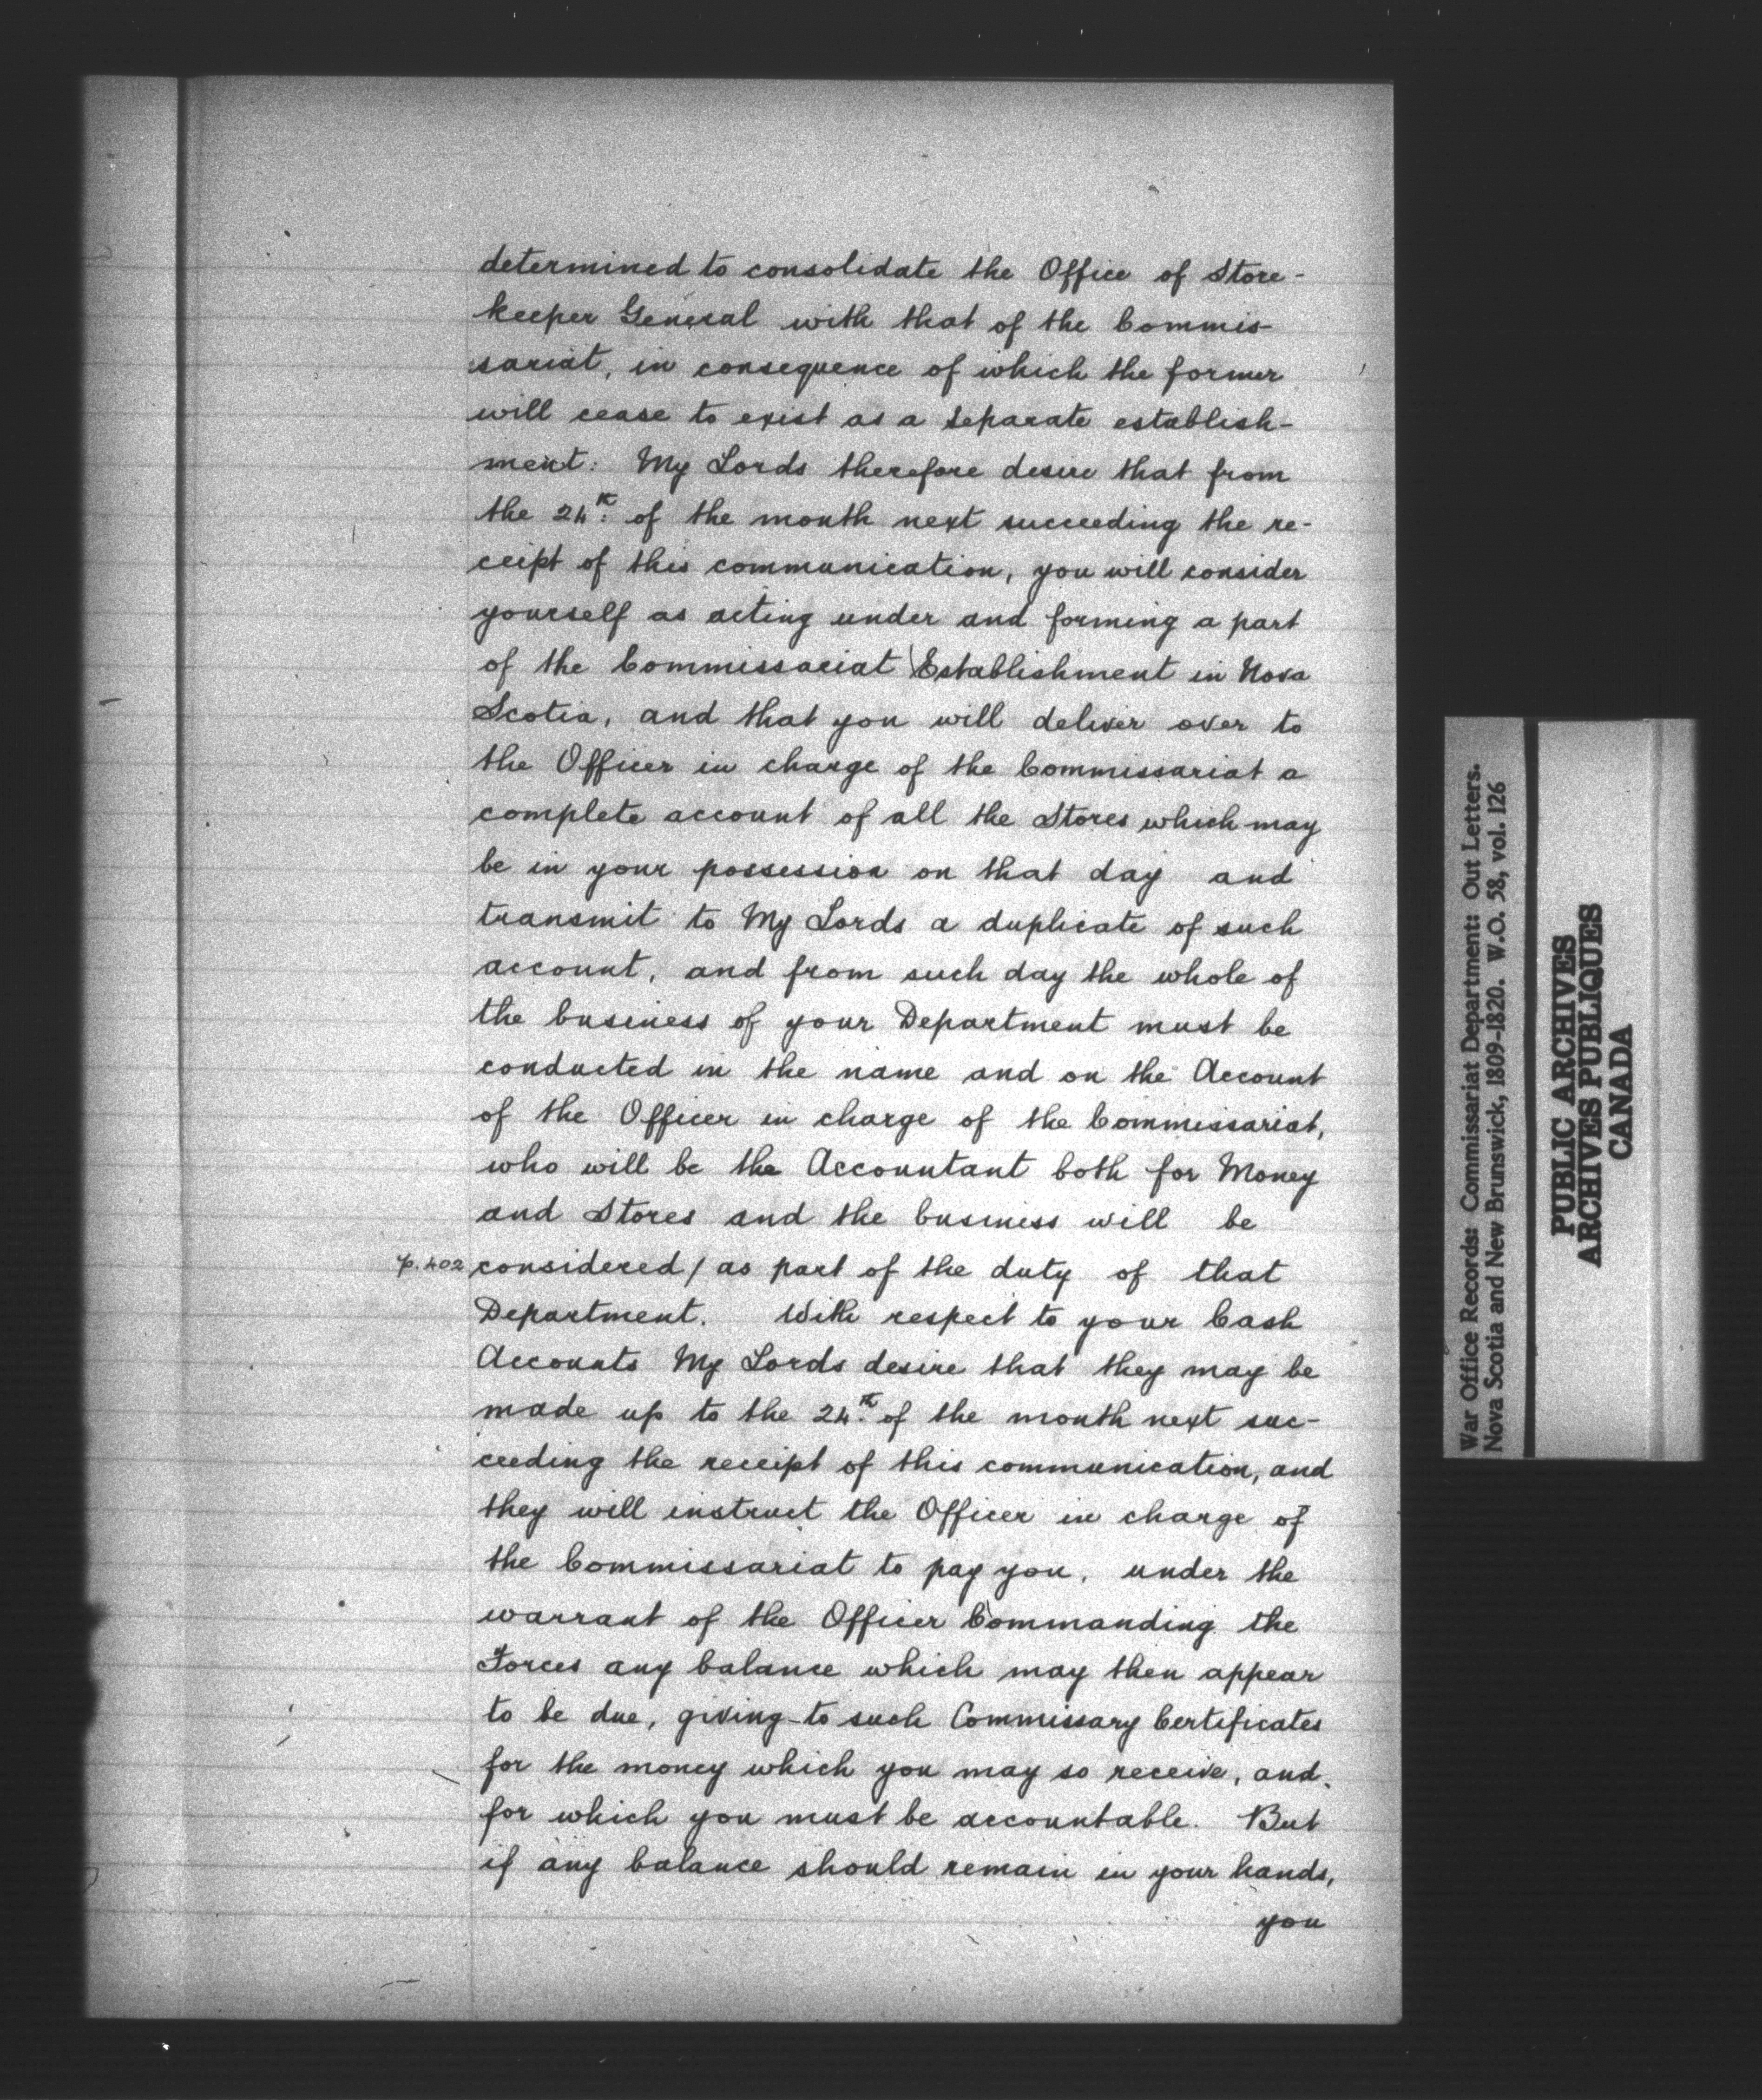 determined to consolidate the Office of Store-
keeper General with that of the Commis-
sariat, in consequence of which the former
will cease to exist as a separate establish-
ment: My Lords therefore desire that from
the 24th. of the month next succeeding the re-
ceipt of this communication, you will consider
yourself as acting under and forming a part
of the Commissariat Establishment in Nova
Scotia, and that you will deliver over to
the Officer in charge of the Commissariat a
complete account of all the Stores which may
be in your possession on that day and
transmit to My Lords a duplicate of such
account, and from such day the whole of
the business of your Department must be
conducted in the name and on the Account
of the Officer in charge of the Commissariat,
who will be the Accountant both for Money
and Stores and the business will be
p. 402 considered / as part of the duty of that
Department. With respect to your Cash
Accounts My Lords desire that they may be
made up to the 24th. of the month next suc-
ceeding the receipt of this communication, and
they will instruct the Officer in charge of
the Commissariat to pay you, under the
warrant of the Officer Commanding the
Forces any balance which may then appear
to be due, giving to such Commissary Certificates
for the money which you may so receive, and
for which you must be accountable. But
if any balance should remain in your hands,
you
War Office Records: Commissariat Department: Out Letters.
Nova Scotia and New Brunswick, 1809-1820. W.O. 58, vol. 126
PUBLIC ARCHIVES
ARCHIVES PUBLIQUES
CANADA